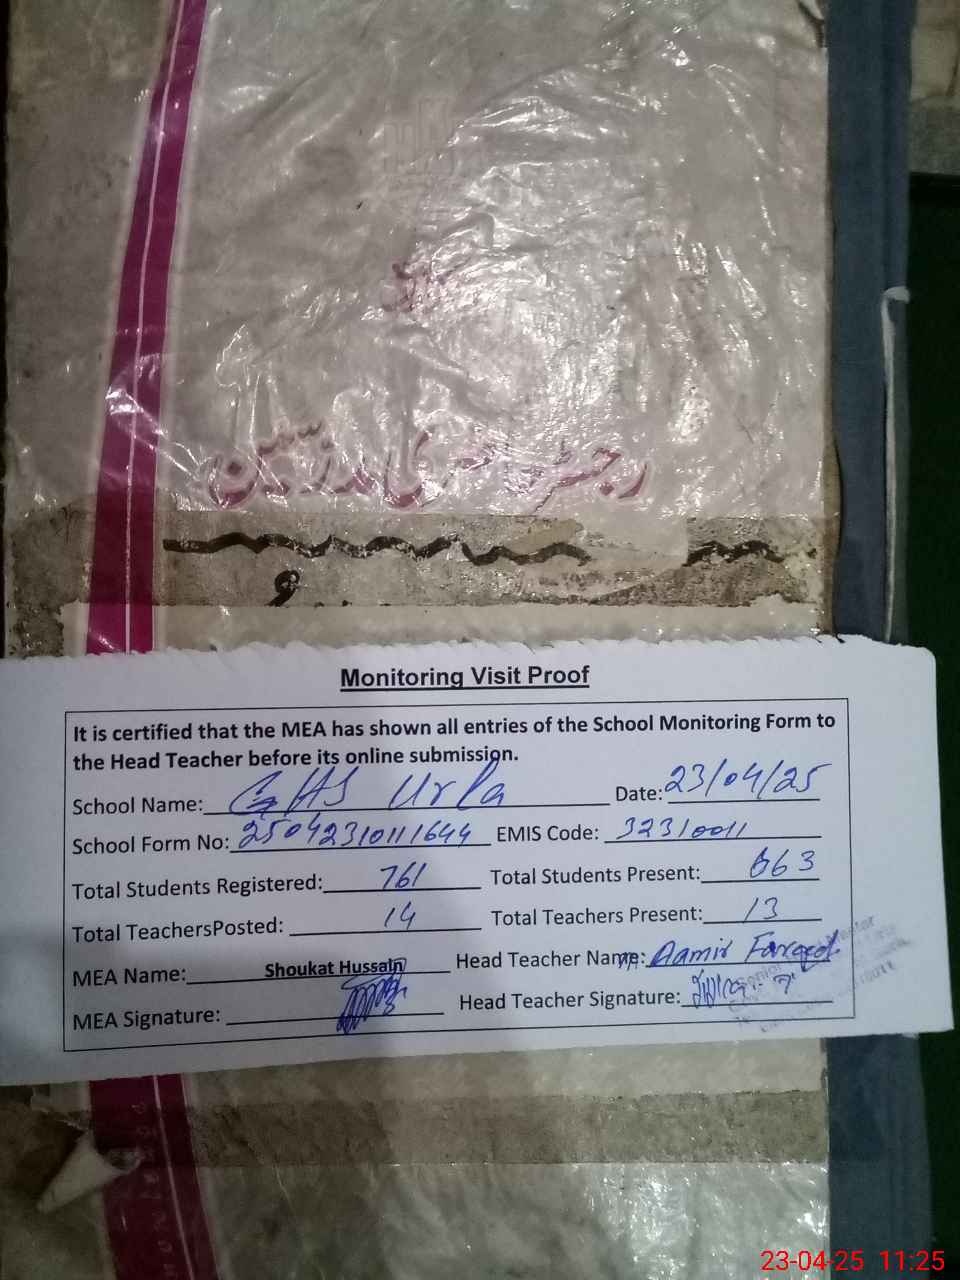 رجسٹر حاضری مدرسین
Monitoring Visit Proof
It is certified that the MEA has shown all entries of the School Monitoring Form to
the Head Teacher before its online submission.
School Name: GHS Urla Date: 23/04/25
School Form No: 25042310111644 EMIS Code: 32310011
Total Students Registered: 761 Total Students Present: 663
Total TeachersPosted: 14 Total Teachers Present: 13
MEA Name: Shoukat Hussain Head Teacher Name: M. Aamir Fareed
MEA Signature: Head Teacher Signature:
23-04-25 11:25